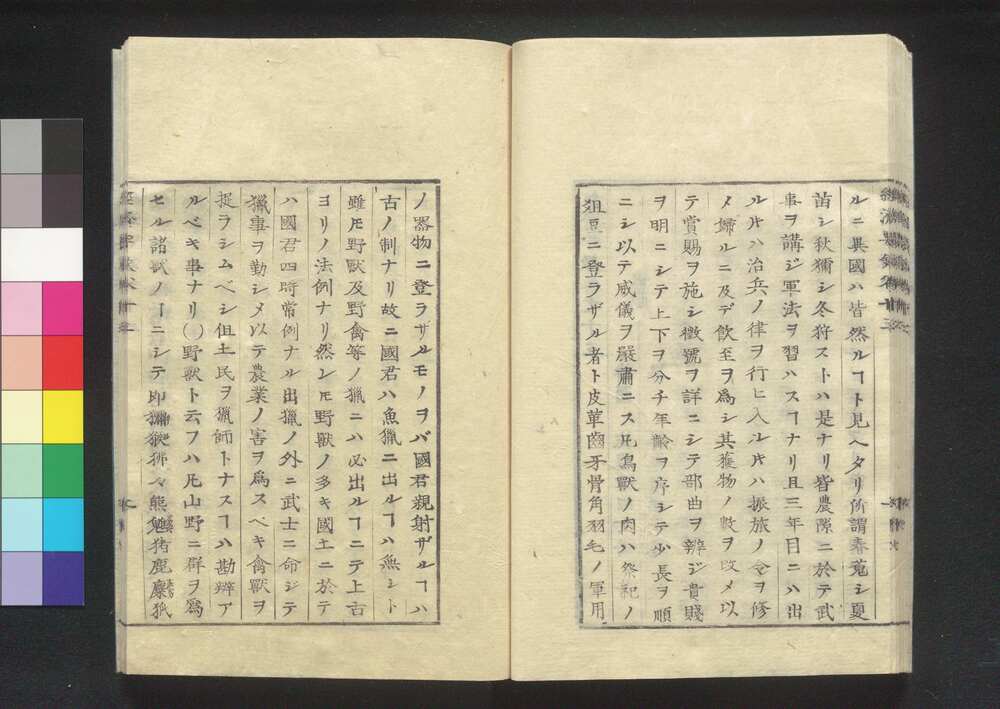 ルニ異國ハ皆然ルヿト見ヘタリ所謂春蒐シ夏
苗シ秋獮シ冬狩ストハ是ナリ皆農隙ニ於テ武
事ヲ講ジ軍法ヲ習ハスヿナリ且三年目ニハ出
ルㇳ𪜈ハ治兵ノ律ヲ行ヒ入ルㇳ𪜈ハ振旅ノ令ヲ修
メ婦ルニ及デ飲至ヲ爲シ其獲物ノ數ヲ改メ以
テ賞賜ヲ施シ徴號ヲ詳ニシテ部曲ヲ辨ジ貴賤
ヲ明ニシテ上下ヲ分チ年齢ヲ序シテ少長ヲ順
ニシ以テ威儀ヲ嚴肅ニス凡鳥獸ノ肉ハ祭祀ノ
俎豆ニ登ラザル者ト皮革齒牙骨角羽毛ノ軍用
ノ器物ニ登ラザルモノヲバ國君親射ザルヿハ
古ノ制ナリ故ニ國君ハ魚獵ニ出ルヿハ無シト
雖𪜈野獸及野禽等ノ獵ニハ必出ルヿニテ上古
ヨリノ法例ナリ然レ𪜈野獸ノ多キ國土ニ於テ
ハ國君四時常例ナル出獵ノ外ニ武士ニ命ジテ
獵事ヲ勤シメ以テ農業ノ害ヲ爲スベキ禽獸ヲ
捉ラシムベシ但土民ヲ獵師トナスヿハ勘辨ア
ルベキ事ナリ〇野獸ト云フハ凡山野ニ群ヲ爲
セル諸獸ノヿニシテ即
狒々熊
猪鹿麋
狐